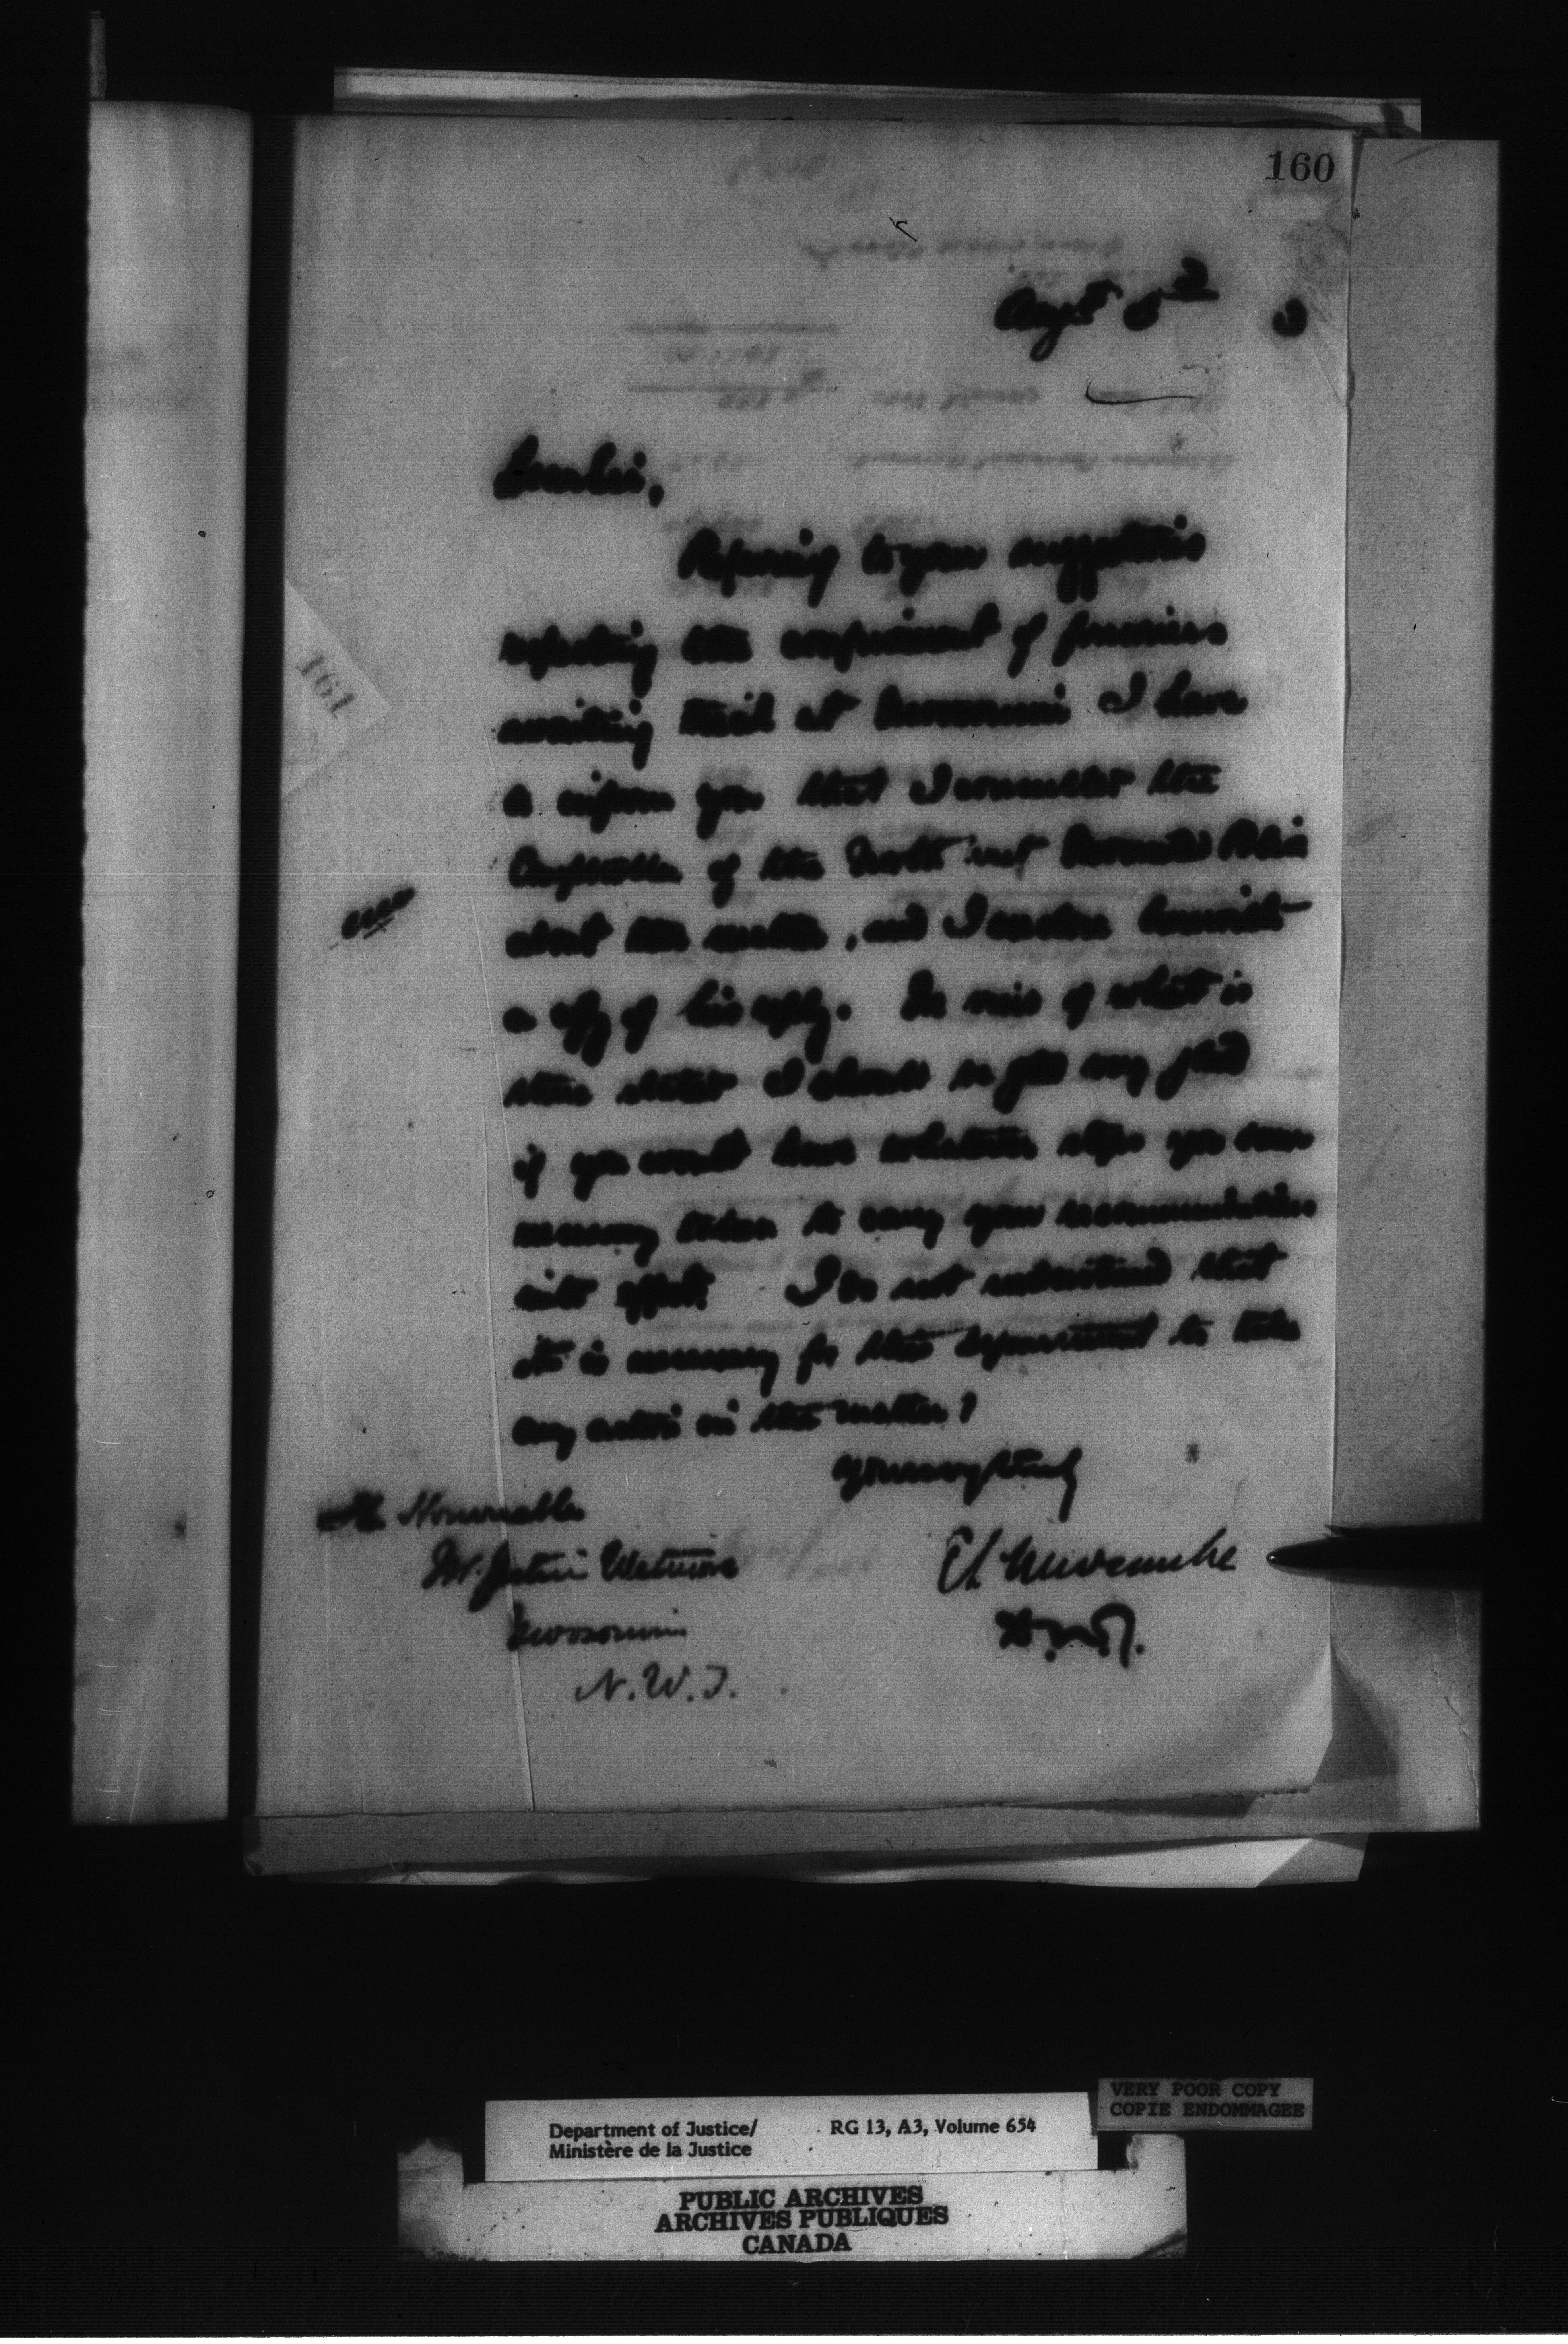 160
Augst 3
Dear Sir,
Referring to your suggestion
respecting the confinement of prisoners
awaiting trial at Moosomin I have
to inform you that I consulted the
Comptroller of the North West Mounted Police
about the matter, and I enclose herewith
a copy of his reply. In view of what is
there stated I should be very glad
if you would have whatever steps you deem
necessary taken to carry your recommendation
into effect. I do not understand that
it is necessary for this department to take
any action in the matter?
Yours very truly
The Honourable
Mr. Justice Wetmore
Moosomin
N.W.T.
E L Newcombe
D.M.J.
161
VERY POOR COPY
COPIE ENDOMMAGEE
Department of Justice/ RG 13, A3, Volume 654
Ministère de la Justice
PUBLIC ARCHIVES
ARCHIVES PUBLIQUES
CANADA